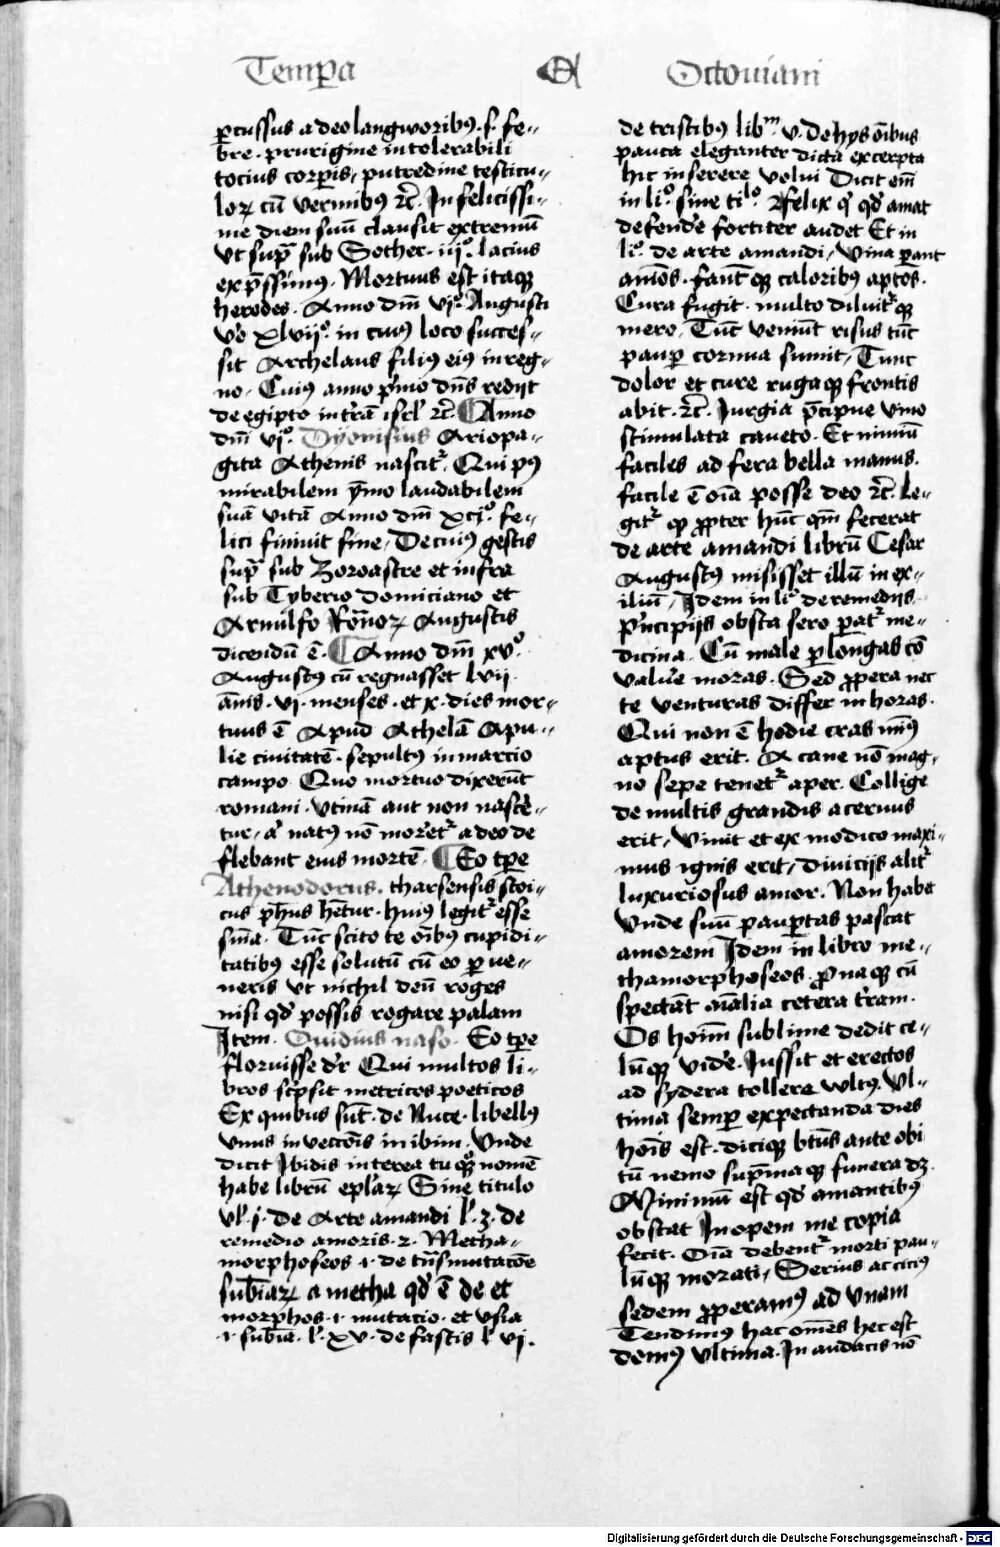 Tempa
Octouiani
percussus a deo langworibus .s. fe-
bre . prurigine intolerabili
tocius corporis, putredine testicu-
lorum cum vermibus etc. Infelicissi-
me diem suum clausit extremum
vt supra sub Sother . iijº . lacius
expressimus . Mortuus est itaque
herodes . Anno dñi vjº . Augusti
vero xlvijº . in cuius loco succes-
sit Archelaus filius eius in reg-
no . Cuius anno primo dñs redijt
de egipto in terram isrl etc. Anno
dñi vjº . Dyonisius Ariopa-
gita Athenis nascitur . Qui post
mirabilem ymo laudabilem
suam vitam Anno dñi xcjº . fe-
lici finiuit fine, De cuius gestis
supra sub Zoroastre et infra
sub Tyberio domiciano et
Arnulfo Romanorum Augustis
dicendum est . Anno dñi xvº .
Augustus cum regnasset lvij .
annis . vj . menses . et x . dies mor-
tuus est Apud Athelam Apu-
lie ciuitatem . sepultus in marcio
campo . Quo mortuo dixerunt
romani . vtinam aut non nascere-
tur, aut natus non moreretur adeo de
flebant eius mortem . Eo tempore
Athenodorus . tharsensis stoi-
cus phus hetur . huius legitur esse
sententia . Tunc scito te omnibus cupidi-
tatibus esse solutum cum eo perue-
neris vt nichil deum roges
nisi quod possis rogare palam
Item . Ouidius naso . Eo tempore
floruisse dicitur Qui multos li-
bros scripsit metricos poeticos
Ex quibus sunt . de Nuce . libellus
vnus inuectionis in ibim . Vnde
dicit Ibidis interea tu quoque nomen
habe librum epistolarum Sine titulo
vl . j . de Arte amandi l . 3 . de
remedio amoris . 2 . Metha-
morphoseos .i. de transmutacione
substanciarum a metha quod est de et
morphos .i. mutacio . et vsia
.i. substancia . l . xv . de fastis l vj .
de tristibus libm . v . de hijs omnibus
pauca eleganter dicta excerpta
hic inserere volui Dicit enim
in liº . sine tiº . felix qui quod amat
defendere fortiter audet Et in
liº . de arte amandi, Vina parant
animos . faciunt que caloribus aptos .
Cura fugit . multo diluitur que
mero . Tunc veniunt risus tunc
pauper cornua sumit, Tunc
dolor et cure rugaque frontis
abit . etc. Iurgia precipue vino
stimulata caueto . Et nimium
faciles ad fera bella manus .
facile est omnia posse deo etc. Le-
gitur quod propter hunc quem fecerat
de arte amandi librum Cesar
Augustus misisset illum in ex-
ilium, Idem in liº de remedijs
Principijs obsta sero paratur me-
dicina . Cum male per longas con
valuere moras . Sed propera nec
te venturas differ in horas .
Qui non est hodie cras minus
aptus erit . A cane non mag-
no sepe tenetur aper . Collige
de multis grandis aceruus
erit, Viuit et ex modico maxi-
mus ignis erit, diuicijs alitur
luxuriosus amor . Non habet
vnde suum paupertas pascat
amorem Idem in libro me-
thamorphoseos . Pronaque cum
spectant animalia cetera terram .
Os homini sublime dedit ce-
lumque videre . Iussit et erectos
ad sydera tollere wltus . Vl-
tima semper expectanda dies
hominis est . dicique beatus ante obi
tum nemo supremaque funera debet .
Minimum est quod amantibus
obstat Inopem me copia
fecit . Omnia debentur morti pau-
lumque morati, Serius ac cicius
sedem properamus ad vnam
Tendimus hac omnes hec est
domus vltima . In audacis non
Digitalisierung gefördert durch die Deutsche Forschungsgemeinschaft - DFG